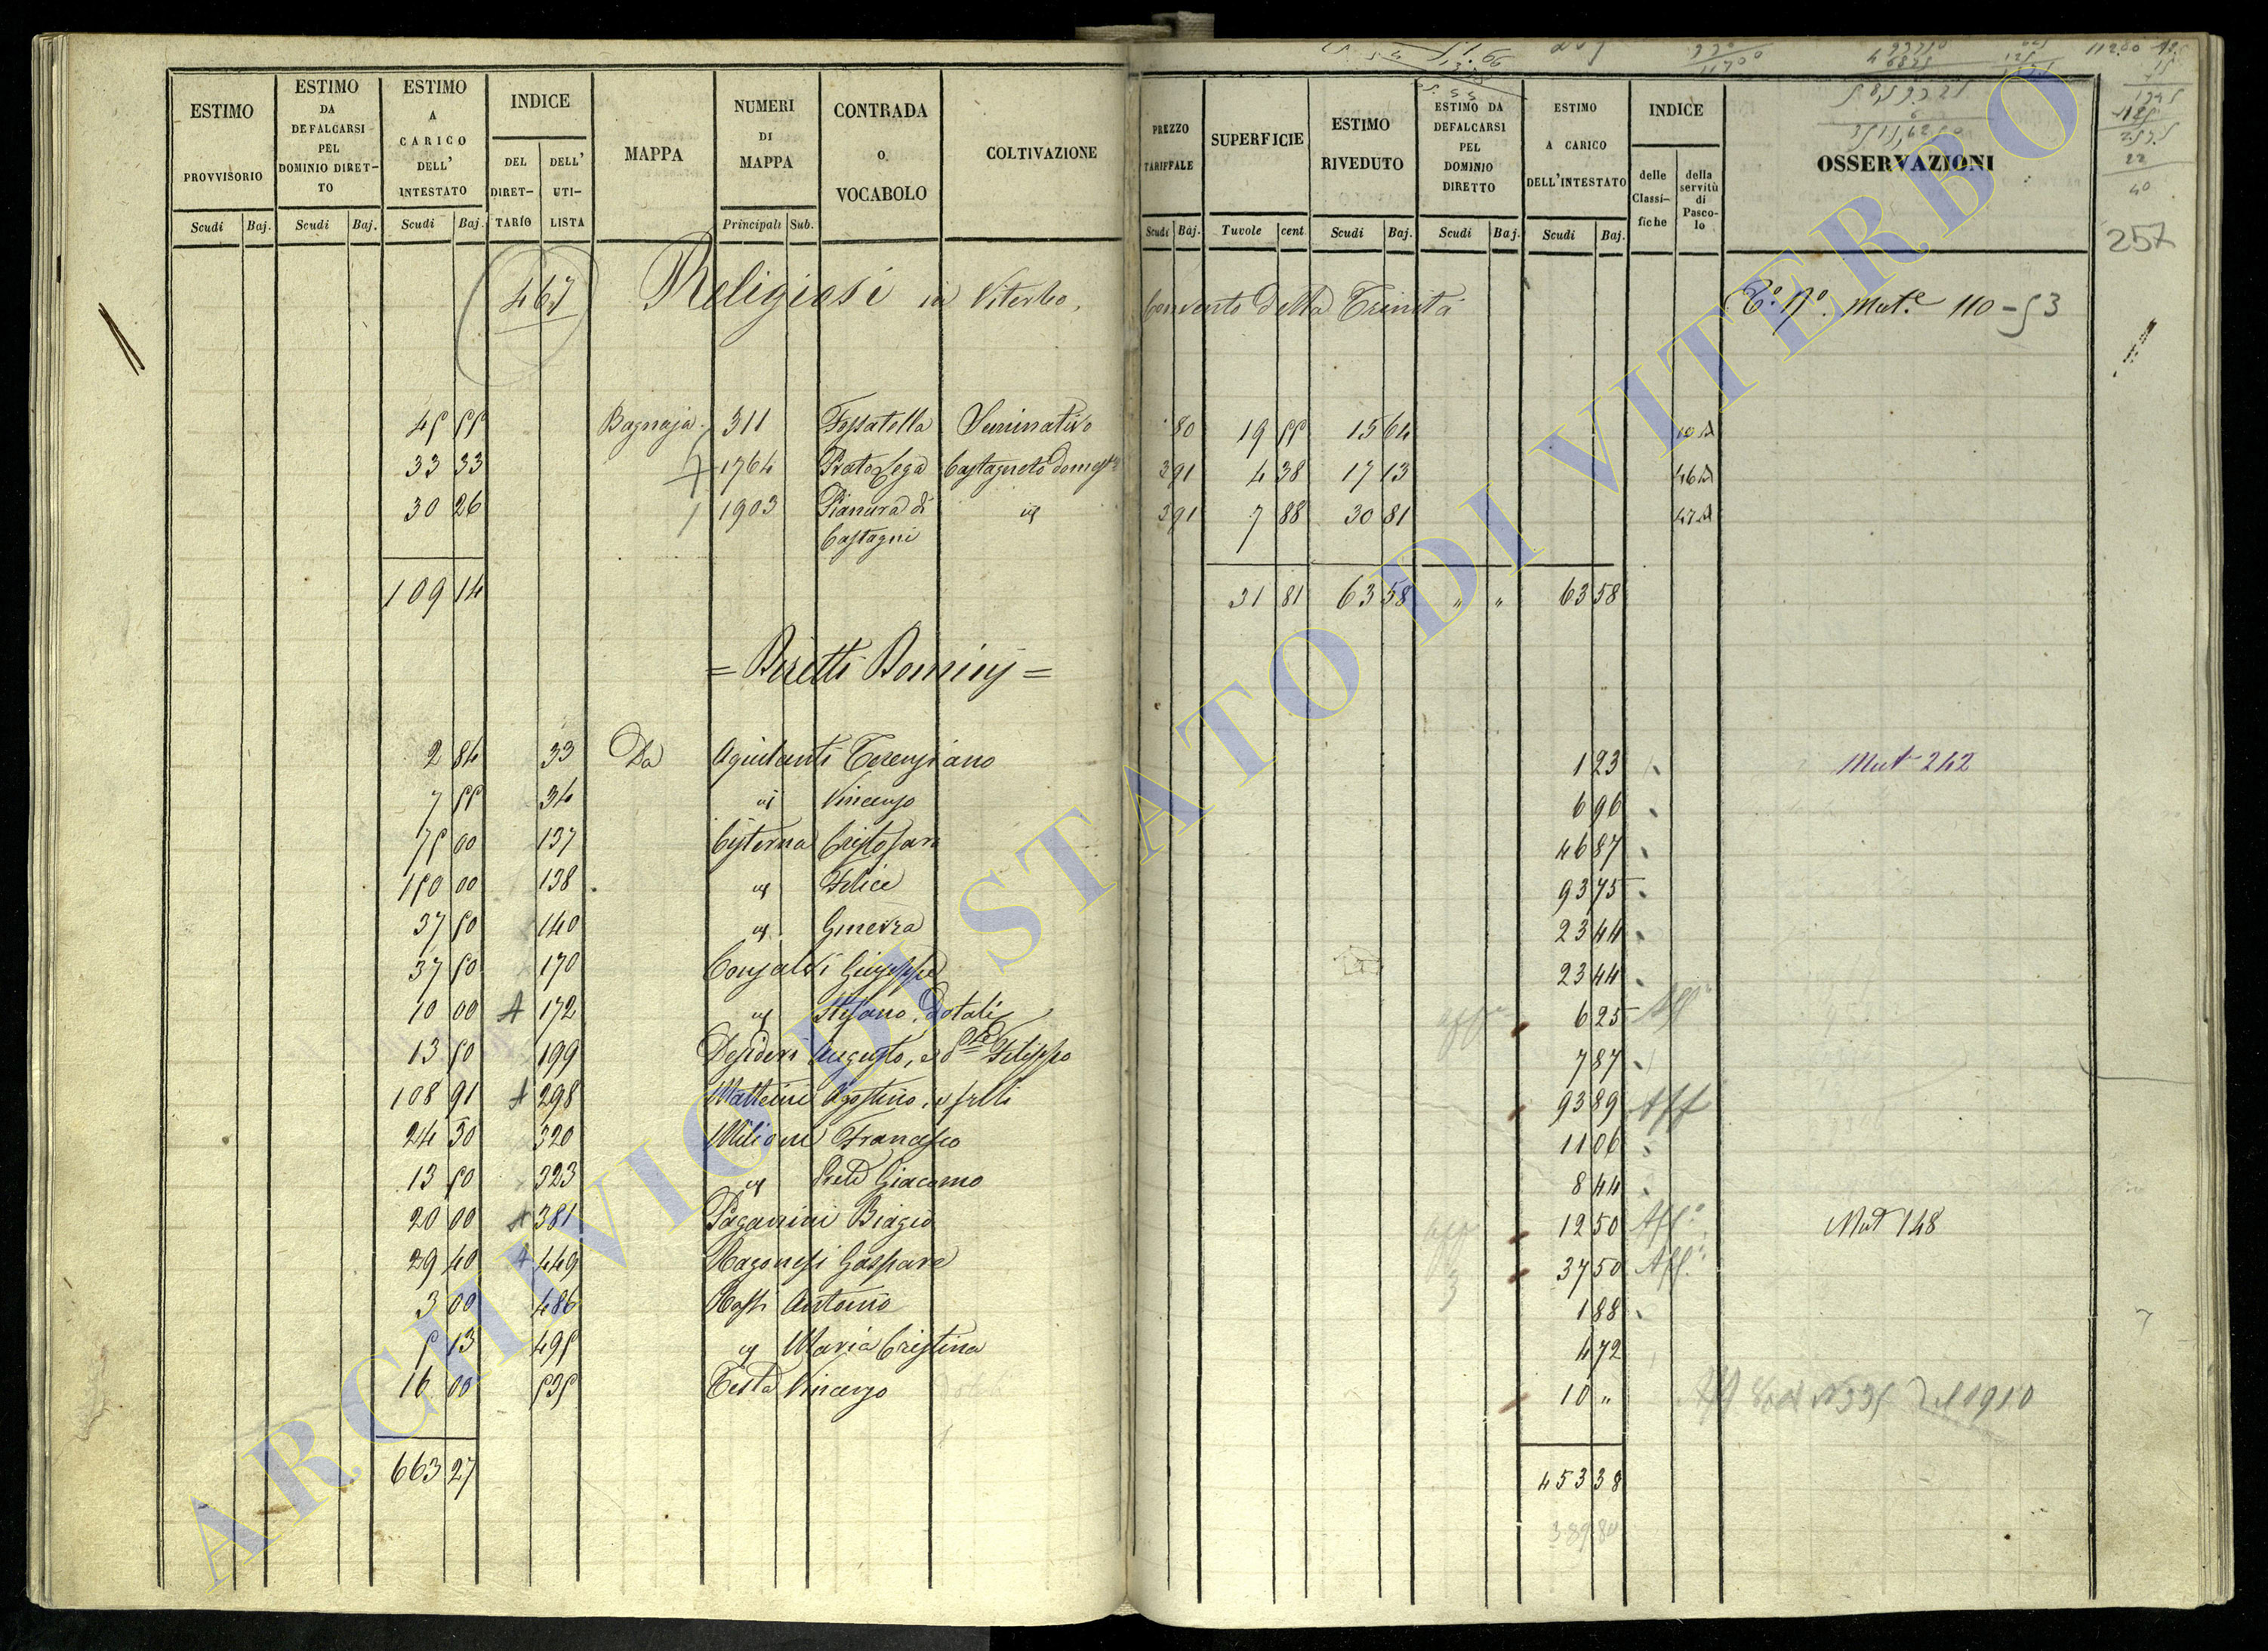 ESTIMO PROVVISORIO Scudi Baj.
ESTIMO DA DEFALCARSI PEL DOMINIO DIRET-TO Scudi Baj.
ESTIMO A CARICO DELL' INTESTATO Scudi Baj.
INDICE DEL DIRET-TARIO DELL' UTI-LISTA
MAPPA
NUMERI DI MAPPA Principali Sub.
CONTRADA O VOCABOLO
COLTIVAZIONE
PREZZO TARIFFALE Scudi Baj.
SUPERFICIE Tavole cent
ESTIMO RIVEDUTO Scudi Baj.
ESTIMO DA DEFALCARSI PEL DOMINIO DIRETTO Scudi Baj.
ESTIMO A CARICO DELL'INTESTATO Scudi Baj.
INDICE delle Classi-fiche della servitù di Pasco-lo
OSSERVAZIONI
257
467 Religiosi in Viterbo, Convento della Trinità T.º Nº. Mut.e 110 - 53
45 55 Bagnaja 311 Fossatella Seminativo 80 19 55 15 64 10 A
33 33 1764 Prato Lega Castagneto domest. 3 91 4 38 17 13 46 A
30 26 1903 Pianura di id 3 91 7 88 30 81 47 A
Castagni
109 14 31 81 63 58 " " 63 58
= Diretti Dominj =
2 84 33 Da Aquilanti Terenziano 1 23 Mut 242
7 55 34 id Vincenzo 6 96
75 00 137 Cisterna Cristofaro 46 87
150 00 138 id Felice 93 75
37 50 140 id Ginevra 23 44
37 50 170 Consalvi Giuseppe 23 44
10 00 A 172 id Stefano, Dotali 6 25 Aff
13 50 199 Desideri Augusto, e Filippo 7 87
108 91 A 298 Matteini Agostino, e frlli 93 89 Aff
24 30 320 Milioni Francesco 11 06
13 50 323 id Prete Giacomo 8 44
20 00 A 381 Paganini Biagio 12 50 Aff.º Mut 148
29 40 A 449 Ragonesi Gaspare 37 50 Aff.
3 00 486 Rossi Antonio 1 88
5 13 495 id Maria Cristina 4 72
16 00 535 Testa Vincenzo 10 "
663 27 453 38
389 80
ARCHIVIO DI STATO DI VITERBO